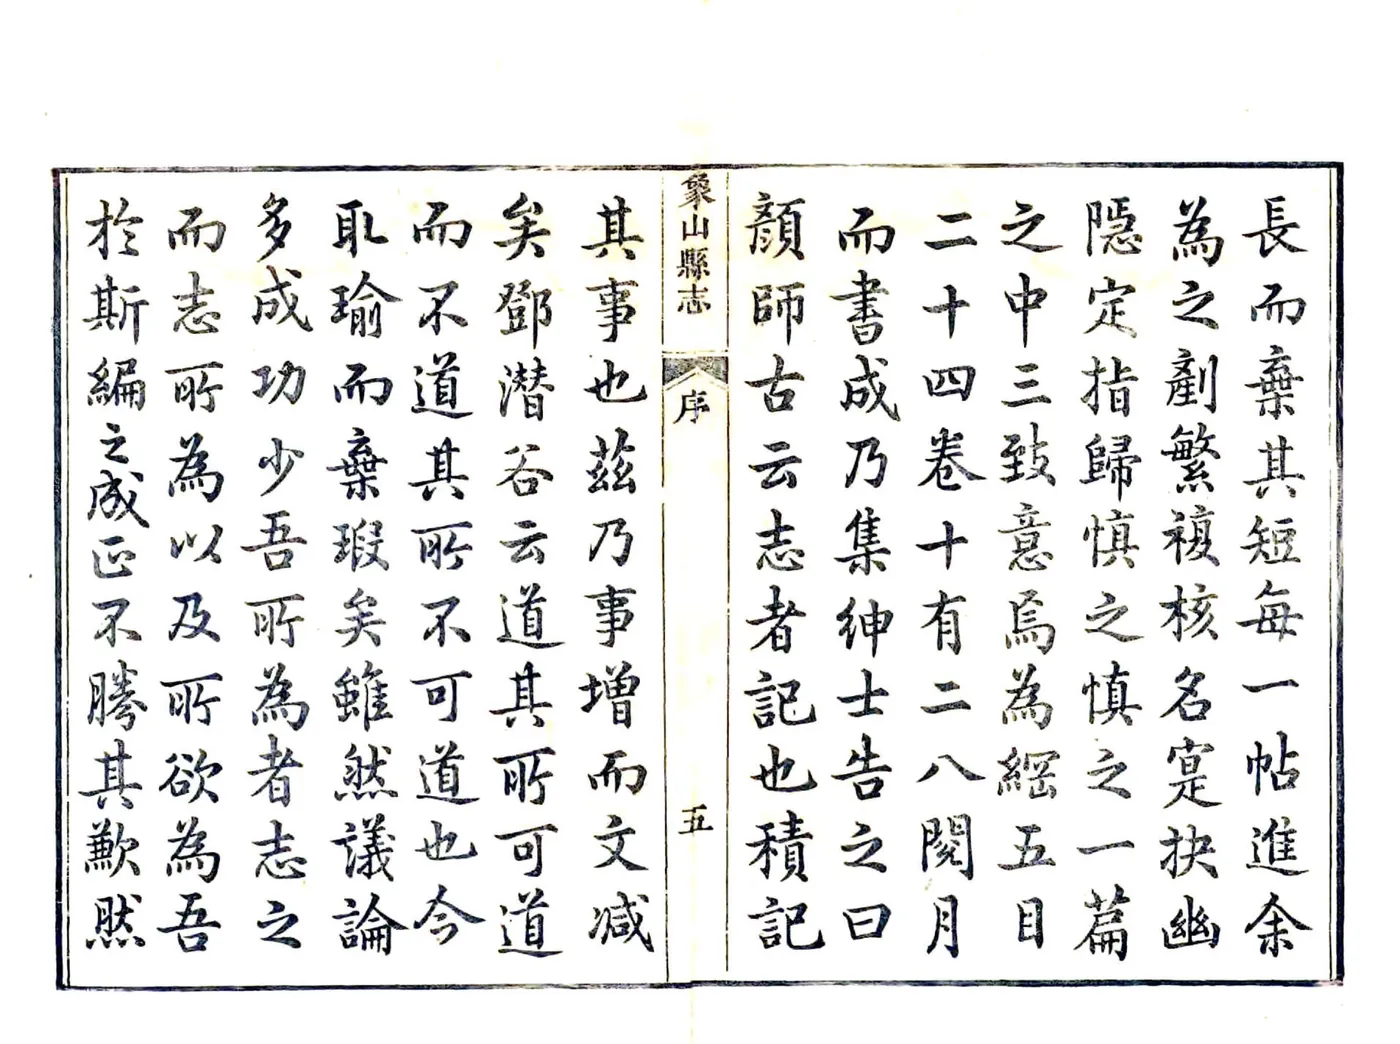 長而棄其短每一帖進余
為之剷繁複核名寔抉幽
隱定指歸慎之慎之一篇
之中三致意焉為綱五目
二十四卷十有二八閱月
而書成乃集紳士告之曰
顏師古云志者記也積記
象山縣志
序
五
其事也茲乃事增而文减
矣鄧潛谷云道其所可道
而不道其所不可道也今
取瑜而棄瑕矣雖然議論
多成功少吾所為者志之
而志所為以及所欲為吾
於斯編之成正不勝其歉然